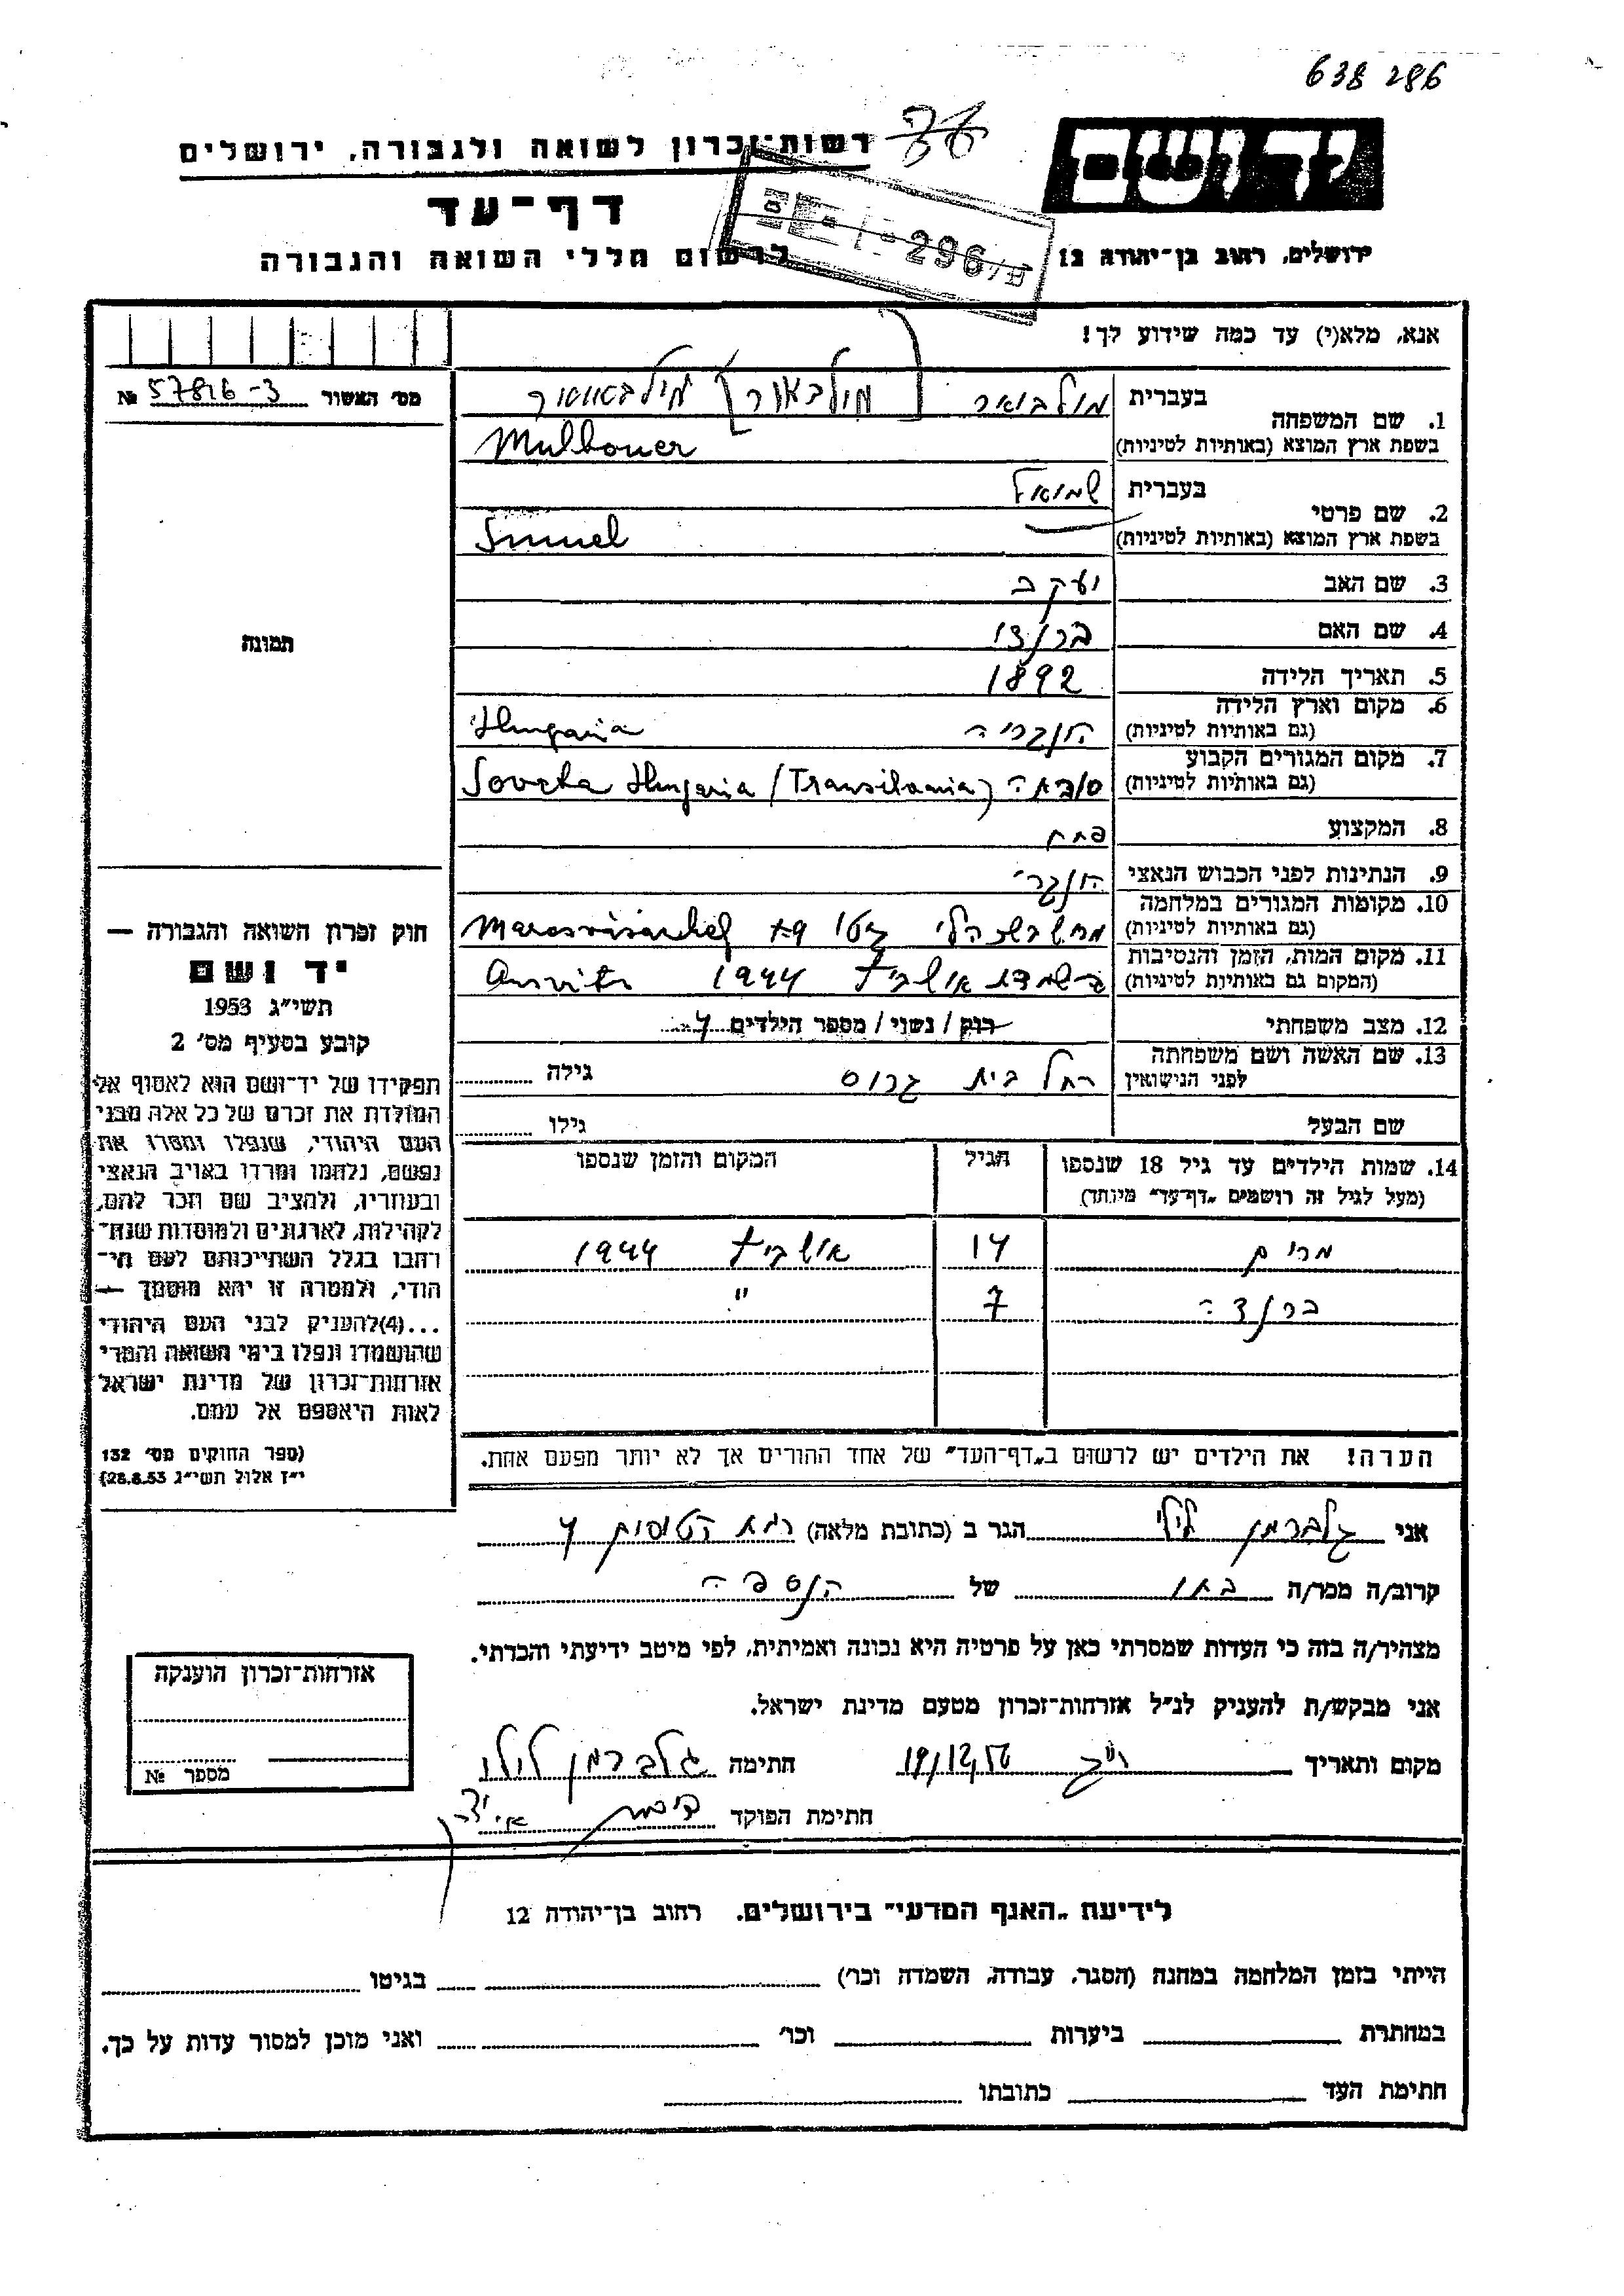 638286
רשות־זכרון לשואה ולגבורה, ירושלים
דף־עד
לרשום חללי השואה והגבורה
ידושם
ירושלים, רחוב בן־יהודה 12
אנא, מלא(י) עד כמה שידוע לך!
מס׳ האשור № 57816-3
תמונה
1. שם המשפחה
בעברית מולבואר [מולבאור]
בשפת ארץ המוצא (באותיות לטיניות) Mulbouer
2. שם פרטי
בעברית שמואל
בשפת ארץ המוצא (באותיות לטיניות) Smuel
3. שם האב יעקב
4. שם האם ברנצי
5. תאריך הלידה 1892
6. מקום וארץ הלידה
(גם באותיות לטיניות) הונגריה Hungaria
7. מקום המגורים הקבוע
(גם באותיות לטיניות) סובאטה Sovata Hungaria (Transilvania)
8. המקצוע
9. הנתינות לפני הכבוש הנאצי הונגרי
10. מקומות המגורים במלחמה
(גם באותיות לטיניות) גטו Marosvásárhely
11. מקום המות, הזמן והנסיבות
(המקום גם באותיות לטיניות) בהשמדה אושביץ 1944
12. מצב משפחתי רווק / נשוי / מספר הילדים 4
13. שם האשה ושם משפחתה
לפני הנישואין רחל בית גרוס גילה
שם הבעל גילו
14. שמות הילדים עד גיל 18 שנספו
(מעל לגיל זה רושמים „דף־עד״ מיוחד)
הגיל
המקום והזמן שנספו
מרים 14 אושביץ 1944
ברנצה 7 "
הערה! את הילדים יש לרשום ב„דף־העד״ של אחד ההורים אך לא יותר מפעם אחת.
חוק זכרון השואה והגבורה —
יד ושם
תשי״ג 1953
קובע בסעיף מס׳ 2
תפקידו של יד־ושם הוא לאסוף אל
המולדת את זכרם של כל אלה מבני
העם היהודי, שנפלו ומסרו את
נפשם, נלחמו ומרדו באויב הנאצי
ובעוזריו, ולהציב שם וזכר להם,
לקהילות, לארגונים ולמוסדות שנח־
רבו בגלל השתייכותם לעם הי־
הודי, ולמטרה זו יהא מוסמך —
...(4)להעניק לבני העם היהודי
שהושמדו ונפלו בימי השואה והמרי
אזרחות־זכרון של מדינת ישראל
לאות היאספם אל עמם.
(ספר החוקים מס׳ 132
י״ז אלול תשי״ג 28.8.53)
אני גלברמן לילי הגר ב (כתובת מלאה) רמת הטייסים 4
קרוב/ה מכר/ה בתו של הנספה
מצהיר/ה בזה כי העדות שמסרתי כאן על פרטיה היא נכונה ואמיתית, לפי מיטב ידיעתי והכרתי.
אני מבקש/ת להעניק לנ״ל אזרחות־זכרון מטעם מדינת ישראל.
מקום ותאריך 19/12.56 חתימה גלברמן לילי
חתימת הפוקד
אזרחות־זכרון הוענקה
מספר №
לידיעת „האגף המדעי״ בירושלים, רחוב בן־יהודה 12
הייתי בזמן המלחמה במחנה (הסגר, עבודה, השמדה וכו׳) בגיטו
במחתרת ביערות וכו׳ ואני מוכן למסור עדות על כך.
חתימת העד כתובתו